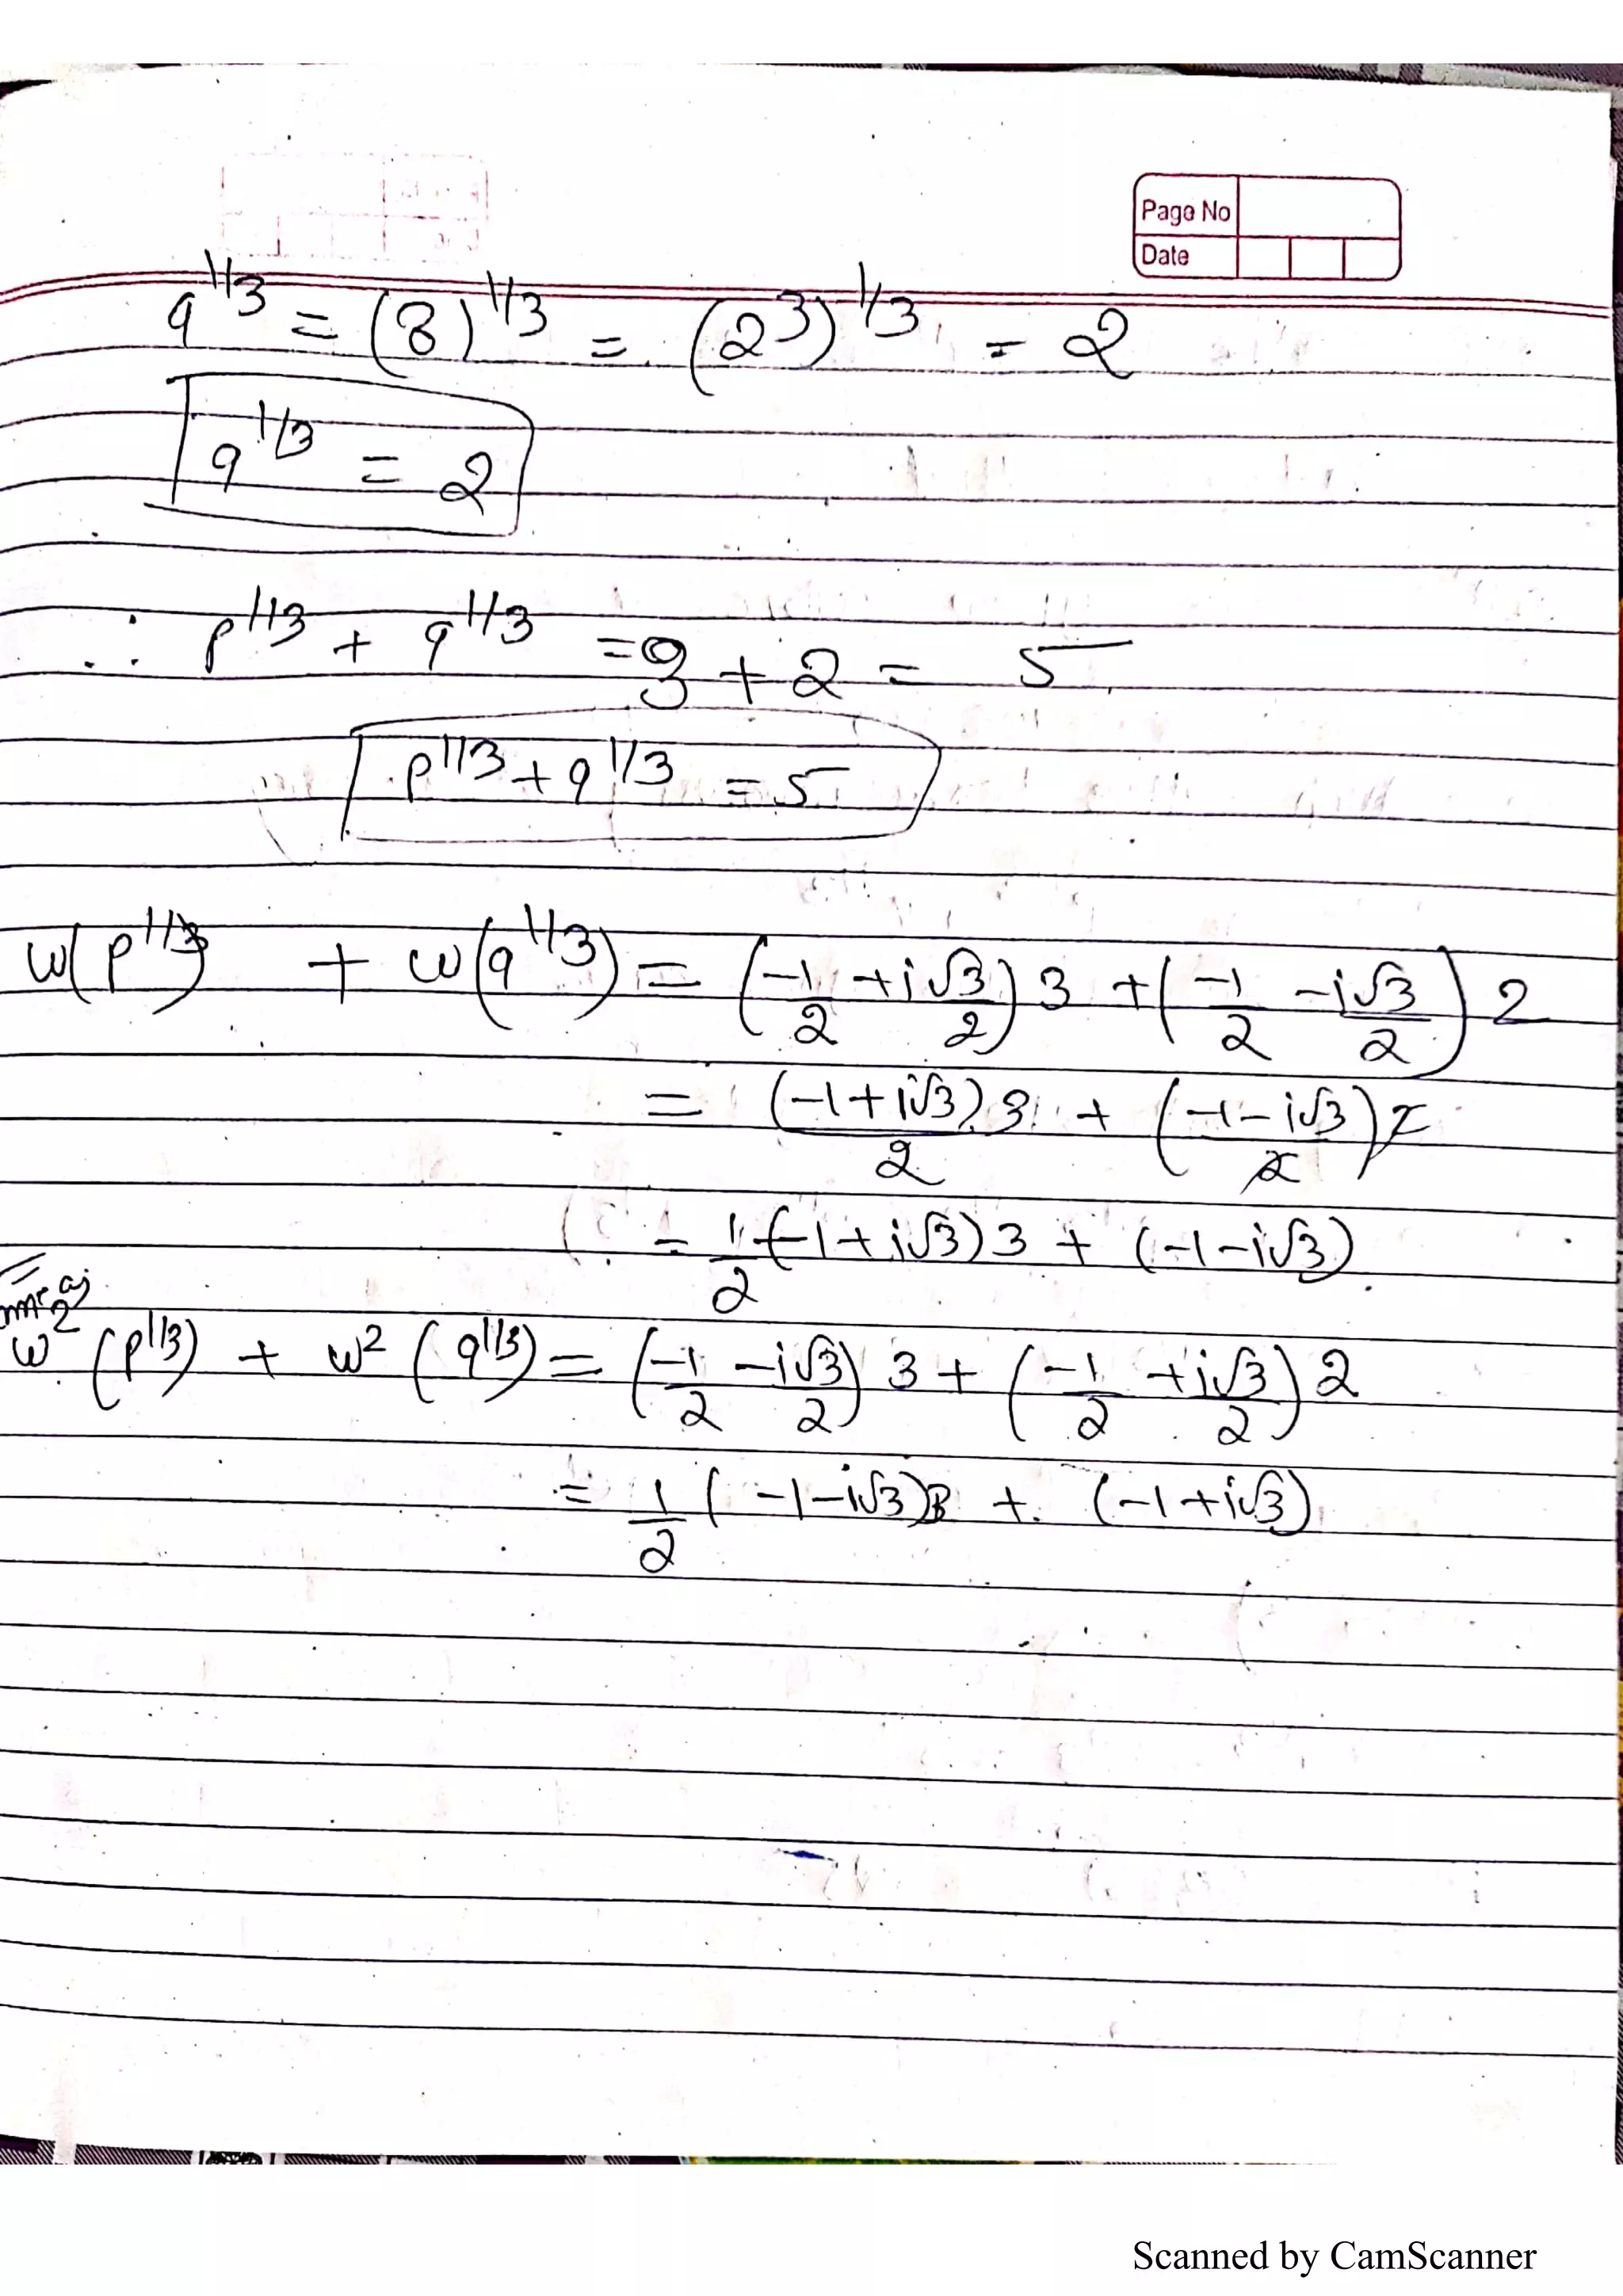 Page No
Date
q^1/3 = (8)^1/3 = (2^3)^1/3 = 2
q^1/3 = 2
∴ p^1/3 + q^1/3 = 3 + 2 = 5
p^1/3 + q^1/3 = 5
w(p^1/3) + w(q^1/3) = (-1/2 + i√3/2) 3 + (-1/2 - i√3/2) 2
= (-1+i√3)/2 3 + (-1-i√3)/2 2
= 1/2 (-1+i√3) 3 + (-1-i√3)
w^2 (p^1/3) + w^2 (q^1/3) = (-1/2 - i√3/2) 3 + (-1/2 + i√3/2) 2
= 1/2 (-1-i√3) 3 + (-1+i√3)
Scanned by CamScanner